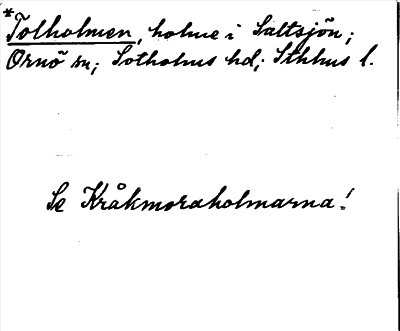 *Tolholmen, holme i Saltsjön;
Ornö sn; Sotholms hd; Sthlms l.
Se Kråkmoraholmarna!